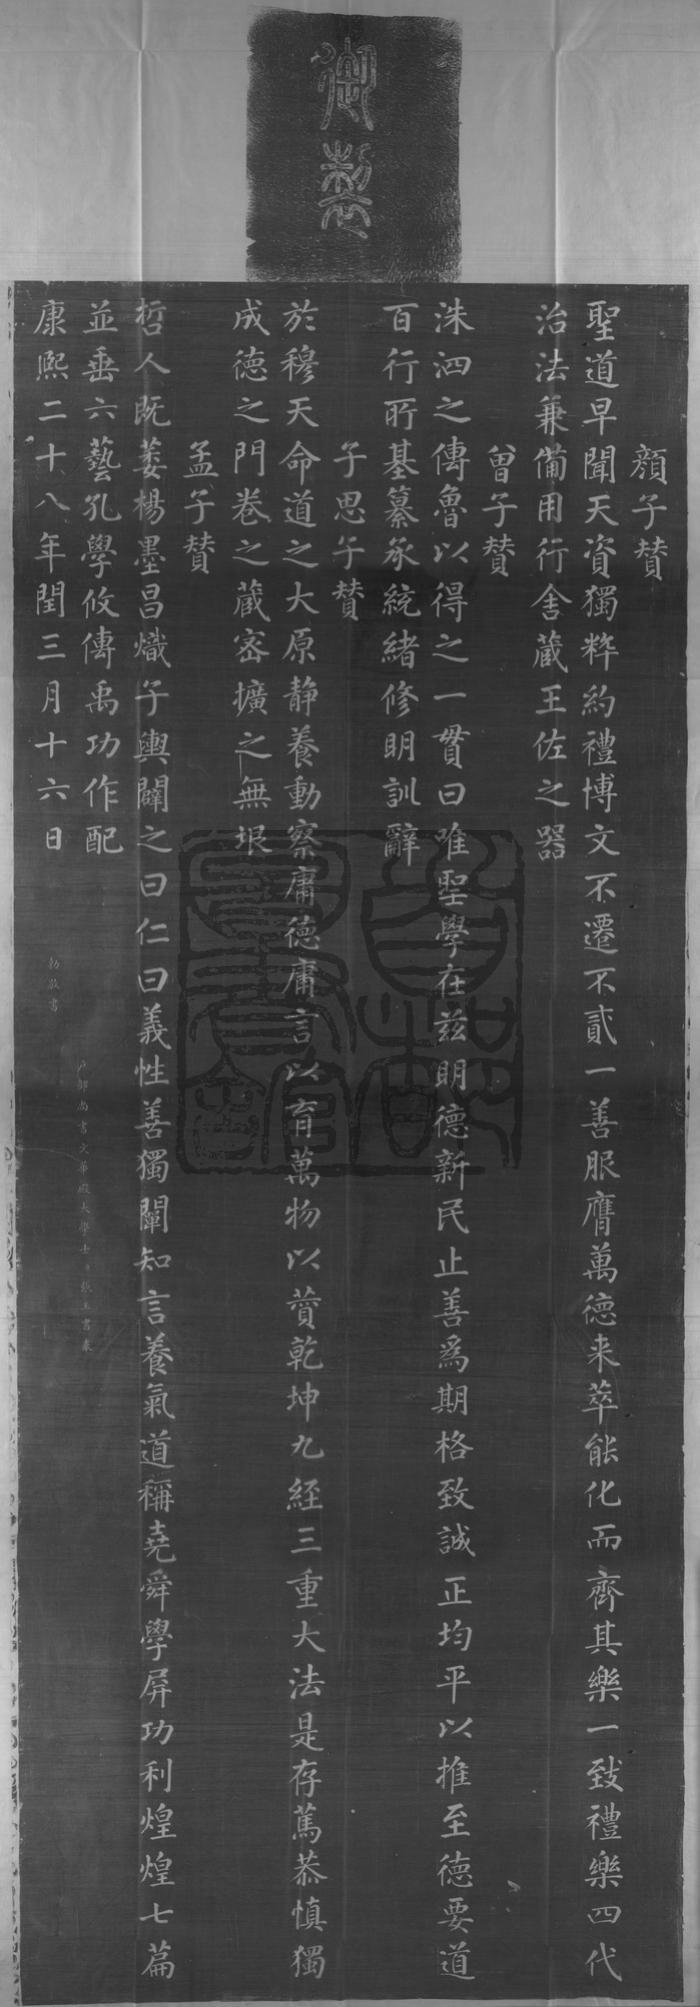 御製
顔子賛
聖道早聞天資獨粹約禮博文不遷不貳一善服膺萬德来萃能化而齊其樂一致禮樂四代
治法兼備用行舍藏王佐之器
曾子賛
洙泗之傳魯以得之一貫曰唯聖學在兹明德新民止善爲期格致誠正均平以推至德要道
百行所基纂承統緒修明訓辭
子思子賛
於穆天命道之大原静養動察庸德庸言以育萬物以賛乾坤九經三重大法是存篤恭慎獨
成德之門卷之藏密擴之無垠
孟子賛
哲人既萎楊墨昌熾子輿闢之曰仁曰義性善獨闡知言養氣道稱堯舜學屏功利煌煌七篇
並垂六藝孔學攸傳禹功作配
康熙二十八年閏三月十六日
户部尚書文華殿大學士張玉書奉
勑敬書